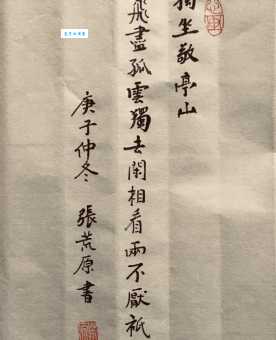 獨坐敬亭山
飛盡孤雲獨去閑相看兩不厭祇
庚子仲冬 張荒原書